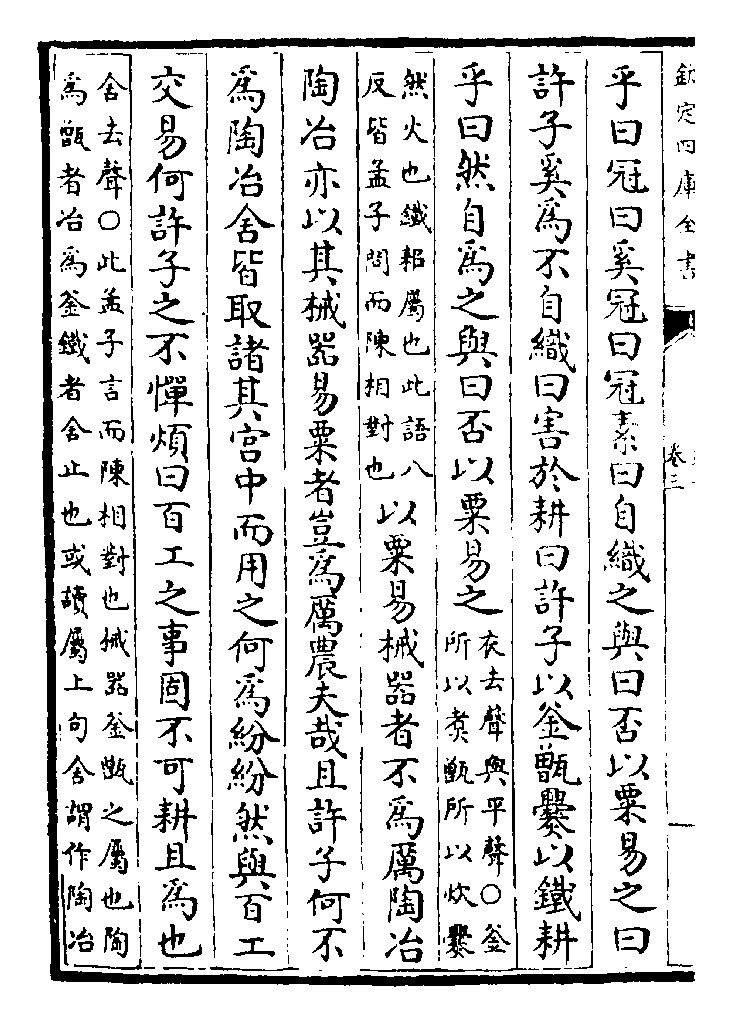 欽定四庫全書
卷三
乎曰冠曰奚冠曰冠素曰自織之與曰否以粟易之曰
許子奚爲不自織曰害於耕曰許子以釜甑爨以鐵耕
乎曰然自爲之與曰否以粟易之
衣去聲與平聲○釜
所以煑甑所以炊爨
然火也鐵耜屬也此語八
反皆孟子問而陳相對也
以粟易械器者不爲厲陶冶
陶冶亦以其械器易粟者豈爲厲農夫哉且許子何不
爲陶冶舍皆取諸其宮中而用之何爲紛紛然與百工
交易何許子之不憚煩曰百工之事固不可耕且爲也
舍去聲○此孟子言而陳相對也械器釜甑之屬也陶
爲甑者冶爲釜鐵者舍止也或讀屬上句舍謂作陶冶